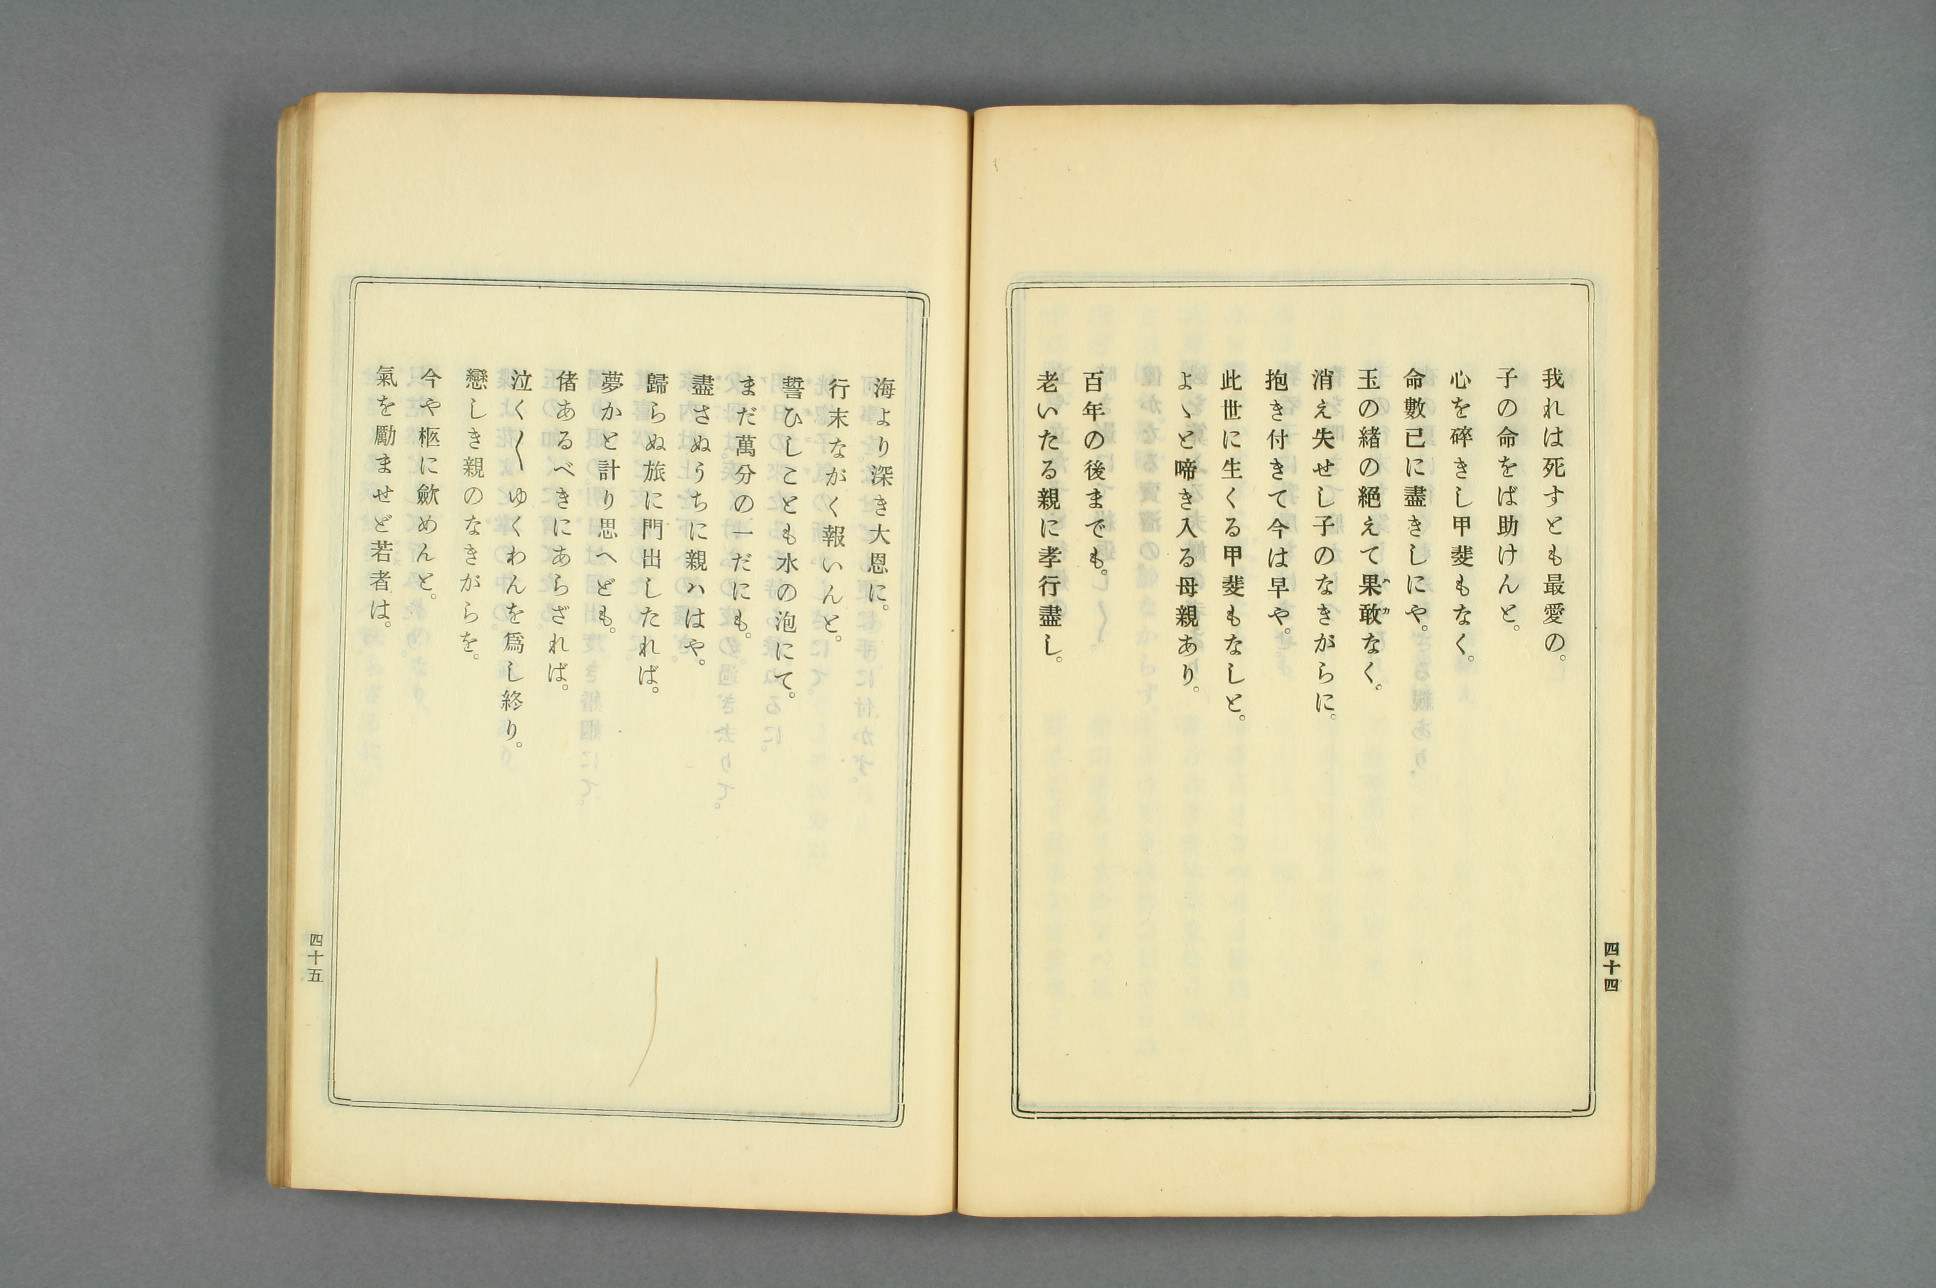 我れは死すとも最愛の。
子の命をば助けんと。
心を碎きし甲斐もなく。
命數已に盡きしにや。
玉の緒の絕えて果敢なく。
消え失せし子のなきがらに。
抱き付きて今は早や。
此世に生くる甲斐もなしと。
よゝと啼き入る母親あり。
百年の後までも。
老いたる親に孝行盡し。
四十四
海より深き大恩に。
行末ながく報いんと。
誓ひしことも水の泡にて。
まだ萬分の一だにも。
盡さぬうちに親ハはや。
歸らぬ旅に門出したれば。
夢かと計り思へども。
偖あるべきにあらざれば。
泣く〱ゆくわんを爲し終り。
戀しき親のなきがらを。
今や柩に歛めんと。
氣を勵ませど若者は。
四十五